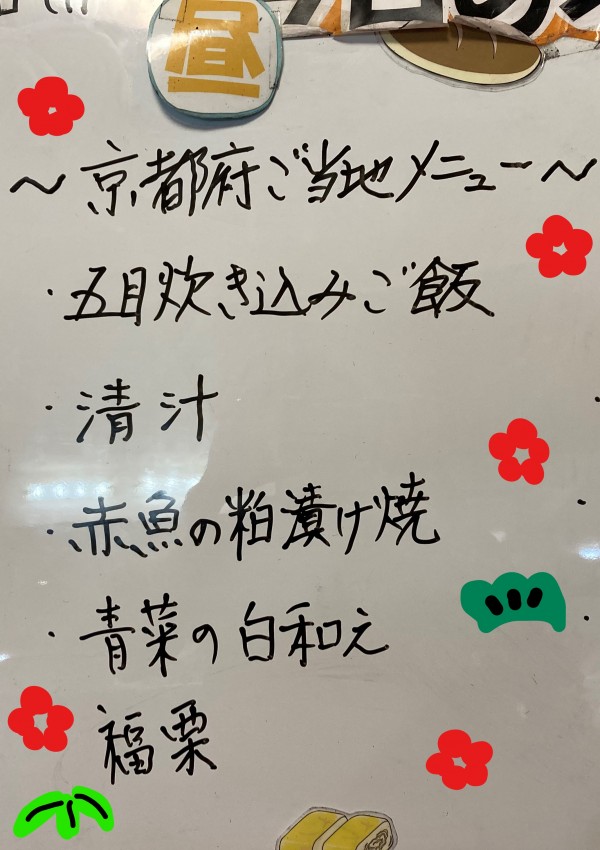 昼
～京都府ご当地メニュー～
・五目炊き込みご飯
・清汁
・赤魚の粕漬け焼
・青菜の白和え
福栗